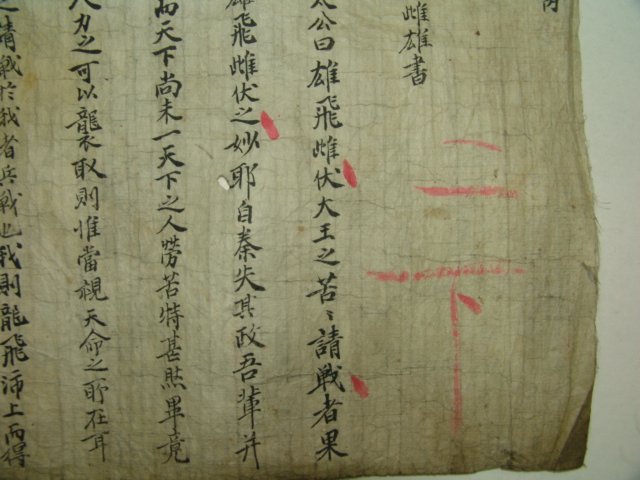 雌雄書
二下
太公曰雄飛雌伏大王之苦〻請戦者果
雄飛雌伏之妙耶自秦失其政吾輩并
而天下尚未一天下之人勞苦特甚然畢竟
人力之可以襲取則惟當視天命之所在耳
之請戦於我者兵戦也我則龍飛沛上而得